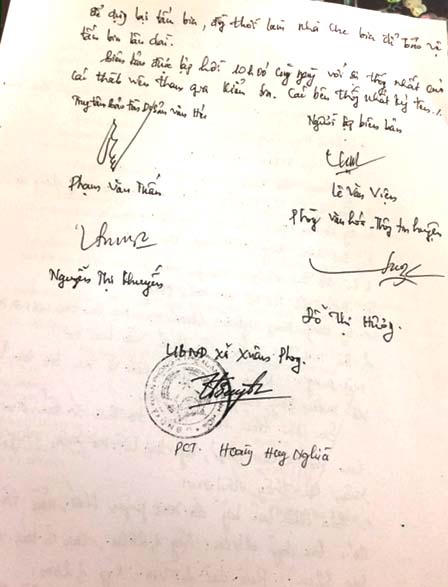 để dựng lại tấm bia, đồng thời làm nhà che bia để bảo vệ
tấm bia lâu dài.
Biên bản được lập hồi 10h00 cùng ngày với sự thống nhất của
các thành viên tham gia kiểm tra. Các bên thống nhất ký tên./.
Trung tâm bảo tồn Di sản văn hóa
Người lập biên bản
Phạm Văn Tuấn
Lê Văn Viện
Phòng văn hóa - Thông tin huyện
Nguyễn Thị Khuyến
Đỗ Thị Hường.
UBND xã Xuân Phong.
PCT. Hoàng Hùng Nghĩa